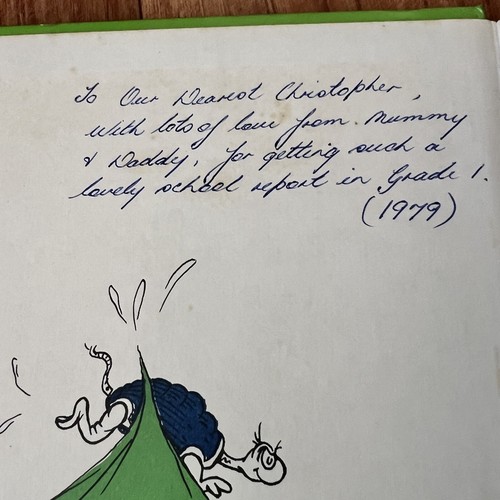 To Our Dearest Christopher,
With lots of love from Mummy
& Daddy, for getting such a
lovely school report in Grade 1.
(1979)